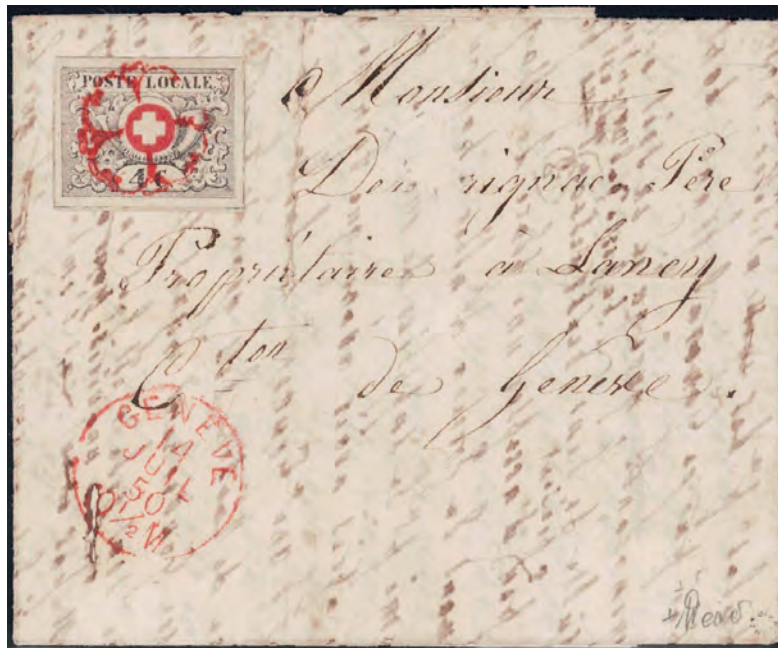 POSTE LOCALE
4 C
Monsieur
Père
Propriétaire à Lancy
C.ton de Genève.
GENÈVE
14
JUIL
50
M